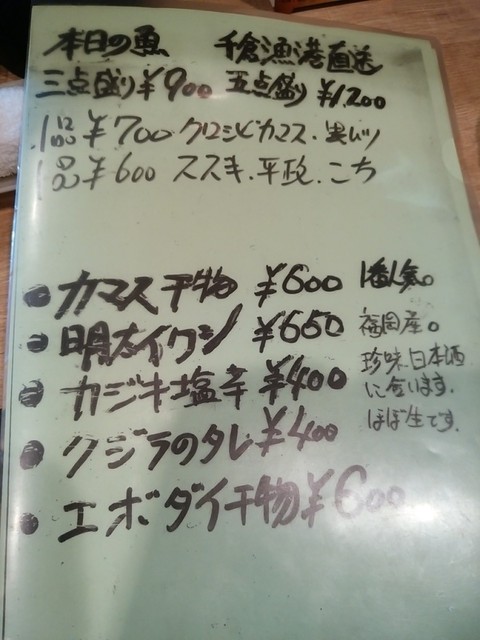 本日の魚 千倉漁港直送
三点盛り¥900 五点盛り ¥1,200
1品¥700 クロシビカマス.黒ムツ
1品¥600 ススキ.平政.こち
● カマス干物 ¥600 1番人気。
● 明太イワシ ¥650 福岡産。
● カジキ塩辛 ¥400 珍味.日本酒に合います.
● クジラのタレ ¥400 ほぼ生です.
● エボダイ干物 ¥600